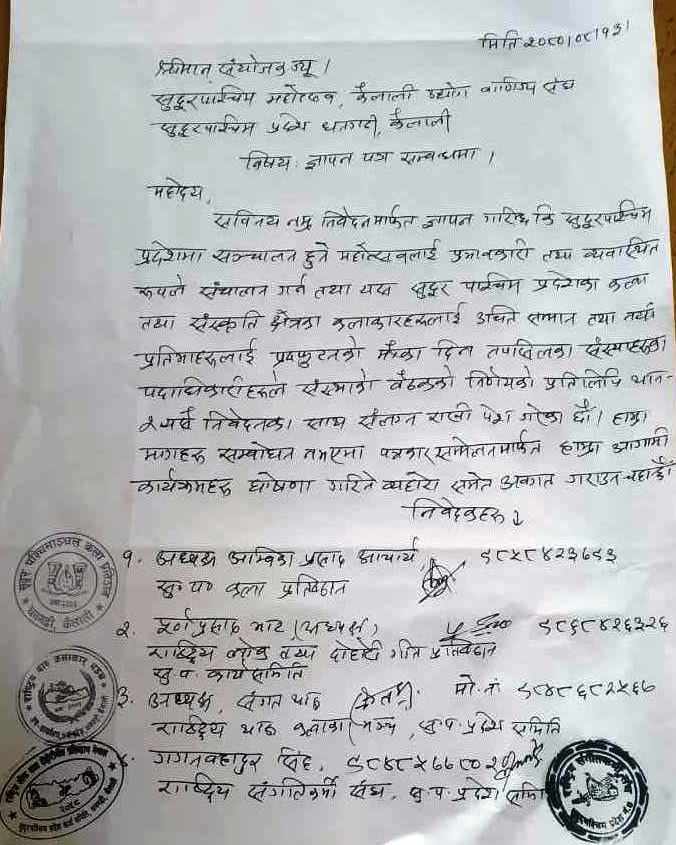 मिति २०८०।०८।१३।
श्रीमान संयोजक ज्यू।
सुदूरपश्चिम महोत्सव, कैलाली उद्योग वाणिज्य संघ
सुदूरपश्चिम प्रदेश धनगढी, कैलाली
विषय: ज्ञापन पत्र सम्बन्धमा।
महोदय,
सविनय नम्र निवेदनमार्फत ज्ञापन गरिन्छ कि सुदूरपश्चिम
प्रदेशमा सञ्चालन हुने महोत्सवलाई प्रभावकारी तथा व्यवस्थित
रूपले संचालन गर्न तथा यस सुदूर पश्चिम प्रदेशका कला
तथा संस्कृति क्षेत्रका कलाकारहरूलाई उचित सम्मान तथा नयाँ
प्रतिभाहरूलाई प्रस्फुटनको मौका दिन तपसिलका संस्थाहरूका
पदाधिकारीहरूले संस्थाको बैठकको निर्णयको प्रतिलिपि थान-
२ यसै निवेदनका साथ संलग्न राखी पेश गरेका छौं। हाम्रा
मागहरू सम्बोधन नभएमा पत्रकार सम्मेलनमार्फत हाम्रा आगामी
कार्यक्रमहरू घोषणा गरिने व्यहोरा समेत अवगत गराउन चहान्छौं
निवेदकहरू
१. अध्यक्ष अम्बिका प्रसाद आचार्य ९८५८४२३७९३
सु. प. कला प्रतिष्ठान
२. पूर्णप्रसाद भाट (अध्यक्ष) ९८६८४२६३२६
राष्ट्रिय लोक तथा दोहोरी गीत प्रतिष्ठान
सु.प. कार्य समिति
३. अध्यक्ष, संगत थारु मो. नं ९८४८६८२५६७
राष्ट्रिय थारु कलाकार मञ्च, सु.प. प्रदेश समिति
४. गगनबहादुर सिंह, ९८४८५७७८०२
राष्ट्रिय संगीतकर्मी संघ, सु.प. प्रदेश समिति